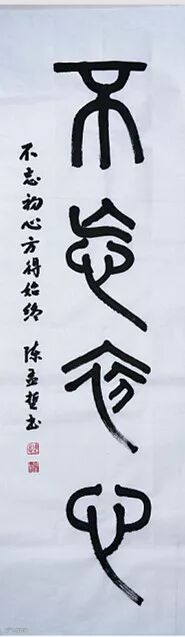 不忘初心
不忘初心方得始终 陈孟哲书